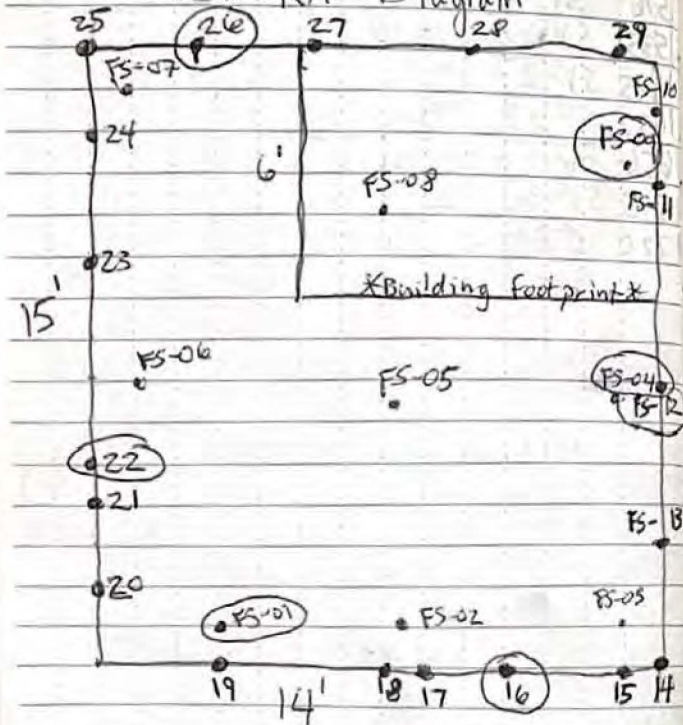 Diagram
25 26 27 28 29
FS-07
FS-10
24
FS-09
6'
FS-08
FS-11
23
*Building footprint*
15'
FS-06
FS-05
FS-04
FS-12
22
21
FS-13
20
FS-01
FS-02
FS-03
19 18 17 16 15 14
14'